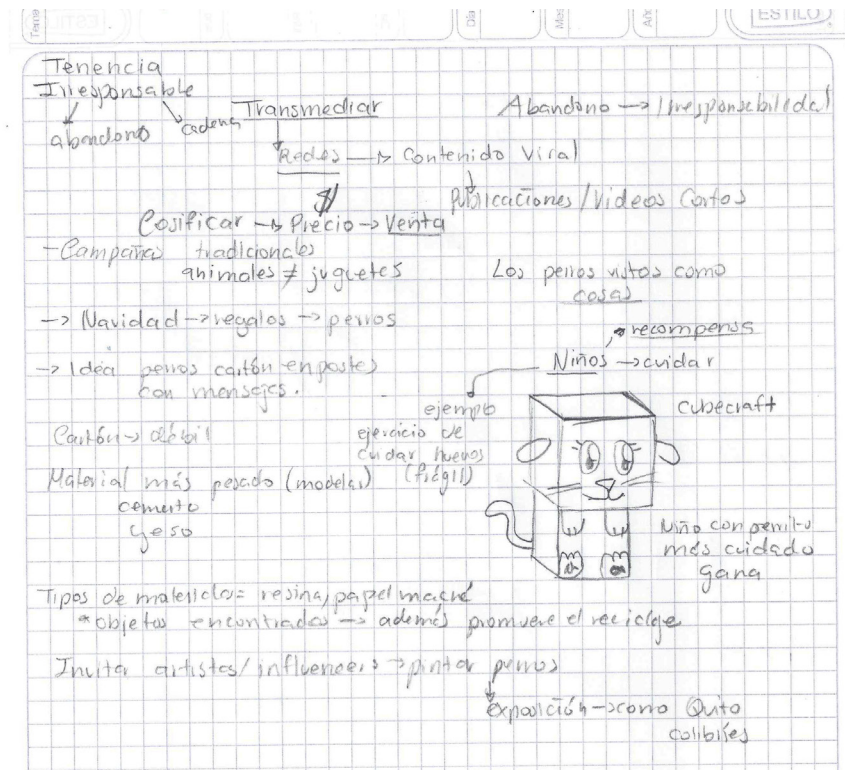 Tene
Día
Mes
Año
ESTILO
Tenencia
Irresponsable
abandono
cadena
Transmediar
Abandono → Irresponsabilidad
Redes → Contenido Viral
Publicaciones / Videos Cortos
$
Cosificar → Precio → Venta
- Campañas tradicionales
animales ≠ juguetes
Los perros vistos como
cosas
→ Navidad → regalos → perros
recompensa
Niños → cuidar
→ Idea perros cartón en postes
con mensajes.
ejemplo
ejercicio de
cuidar huevos
(frágil)
cubecraft
Cartón → débil
Material más pesado (modelar)
cemento
yeso
Niño con perrito
más cuidado
gana
Tipos de materiales = resina, papel maché
* objetos encontrados → además promueve el reciclaje
Invitar artistas / influencers → pintar perros
exposición → como Quito
colibríes